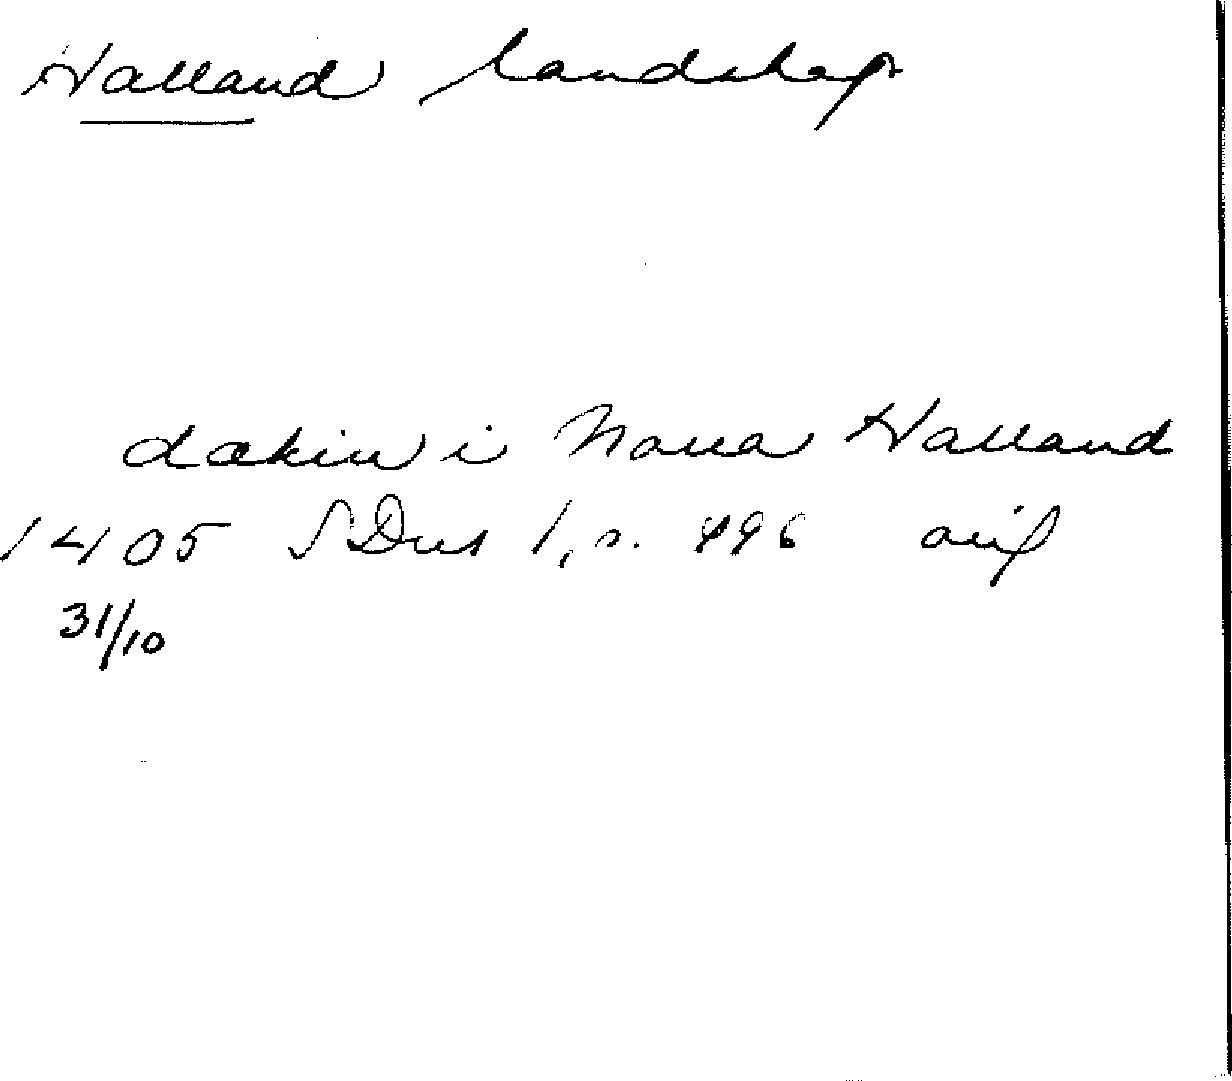 Halland landskap
dækin i Nørra Halland
1405 SDns 1, s. 496 orig
31/10